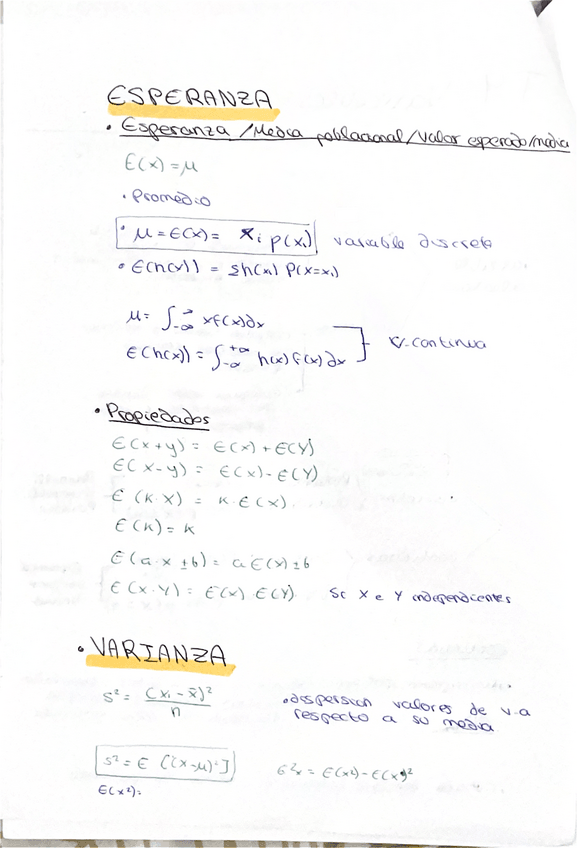 ESPERANZA
• Esperanza / Media poblacional / Valor esperado / media
E(x) = μ
• Promedio
• μ = E(x) = x_i p(x_i) variable discreta
• E(h(x)) = Sh(x_i) P(X=x_i)
μ = ∫_{-∞}^{∞} x f(x) ∂x
E(h(x)) = ∫_{-∞}^{+∞} h(x) f(x) ∂x V. continua
• Propiedades
E(x+y) = E(x) + E(Y)
E(x-y) = E(x) - E(Y)
E(K·X) = K·E(x).
E(K) = K
E(a·x ± b) = a E(x) ± b
E(x·Y) = E(x)·E(Y) Si X e Y independientes
• VARIANZA
S² = (x_i - x̄)² / n • dispersion valores de v.a
respecto a su media
S² = E [(x-μ)²] σ²x = E(x²) - E(x)²
E(x²) =